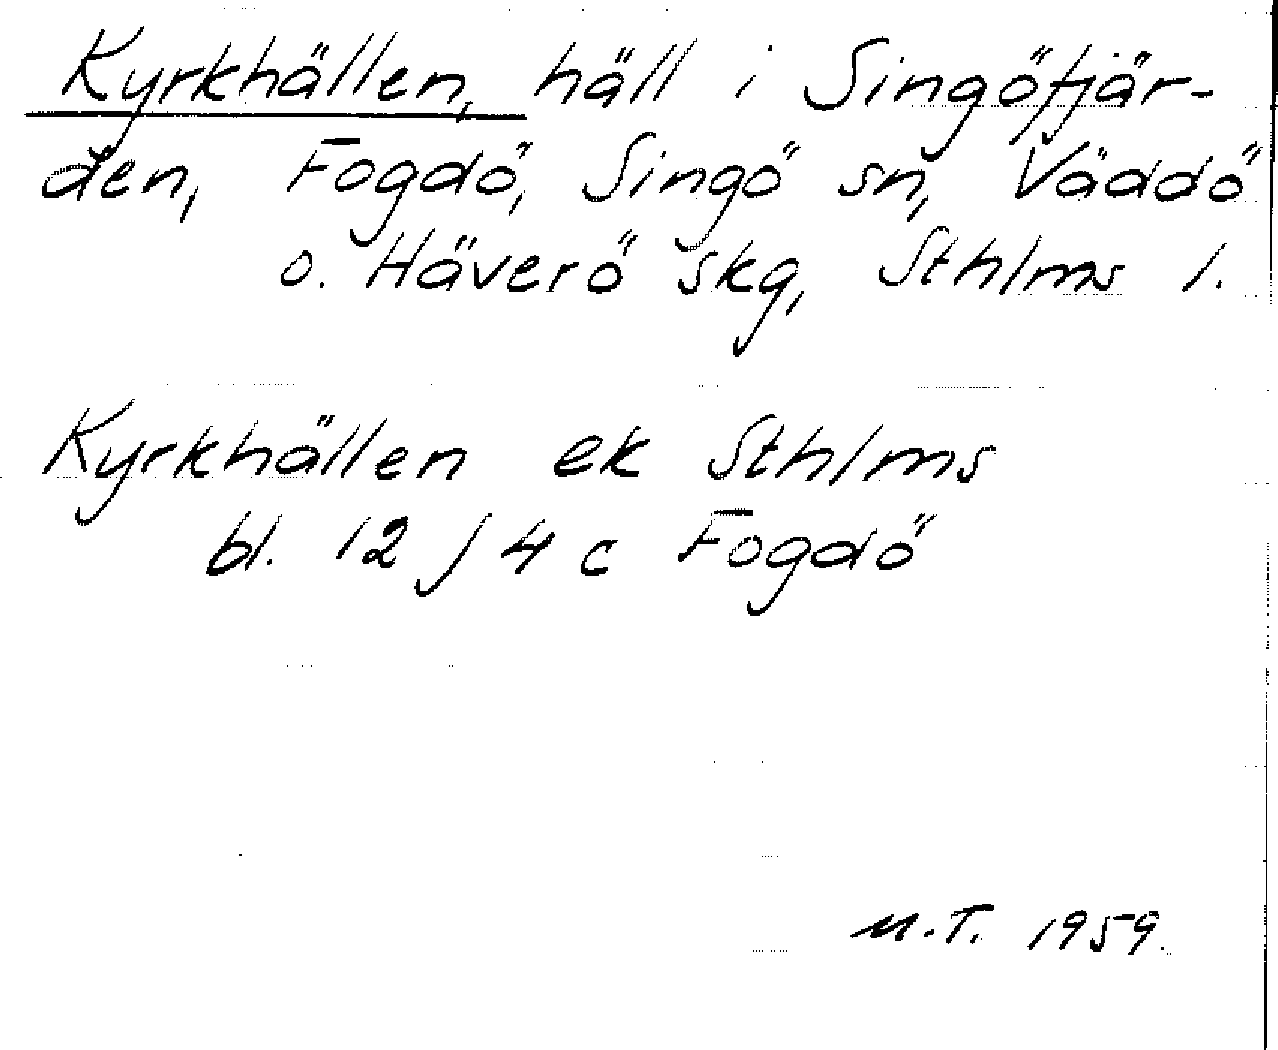 Kyrkhällen, häll i Singöfjär-
den, Fogdö, Singö sn, Väddö
o. Häverö skg, Sthlms l.
Kyrkhällen ek Sthlms
bl. 12 j 4 c Fogdö
M.T. 1959.